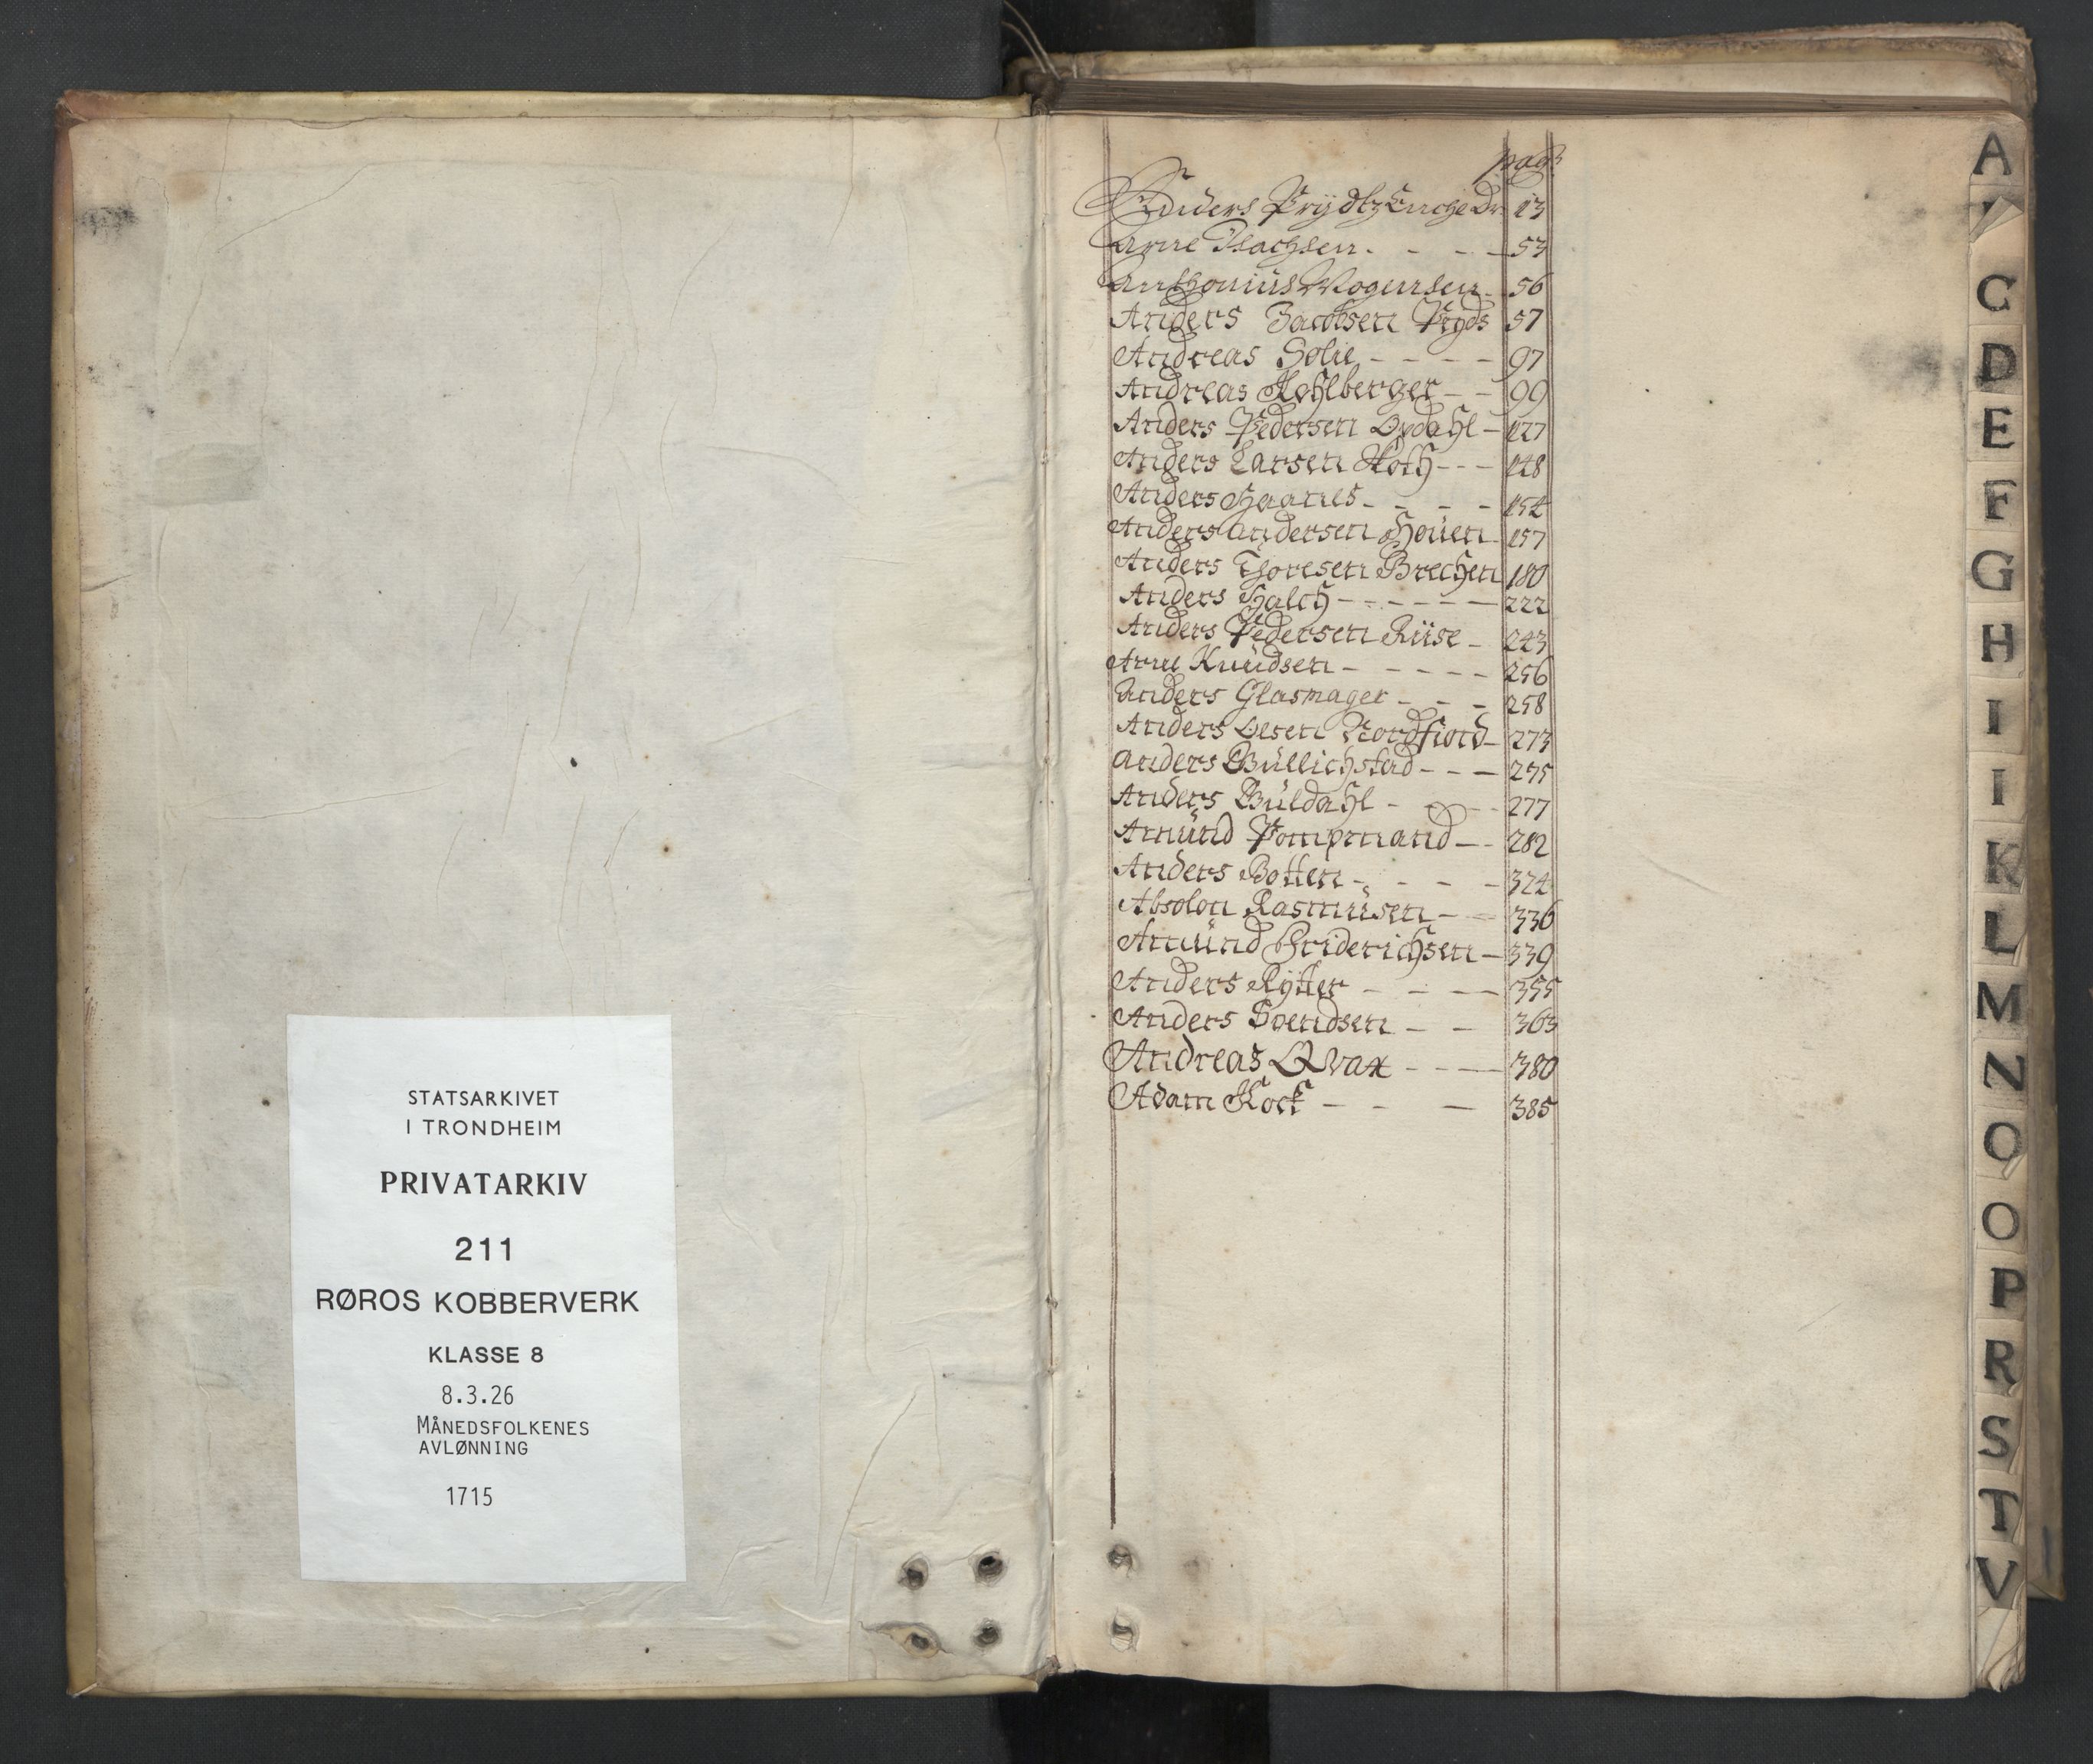 STATSARKIVET
I TRONDHEIM
PRIVATARKIV
211
RØROS KOBBERVERK
KLASSE 8
8.3.26
MÅNEDSFOLKENES
AVLØNNING
1715
pag:
Anders Prÿdtz Enche 13
Arne Isachsen - - - - 53
Anthonius Mogensen - 56
Anders Jacobsen Prÿds 57
Andreas Solie - - - - 97
Andreas Kohlberger - - 99
Anders Pedersen Opdahl - 127
Anders Larsen Koth - - - 148
Anders Haanes - - - - 154
Anders Andersen Houen - 157
Anders Thoresen Brechen 180
Anders Halch - - - - - - 222
Anders Pedersen Riise - 243
Arne Knudsen - - - - - 256
Anders Glasmager - - - 258
Anders Olsen Nordfiord - 273
Anders Büllichstad - - - 275
Anders Büldahl - - - 277
Amünd Pompmand - - 282
Anders Botten - - - - 324
Absolon Rasmüsen - - 336
Amünd Friderichsen - 339
Anders Rÿtter - - - - 355
Anders Svendsen - - 363
Andreas Qvax - - - - 380
Adam Kock - - - 385
A
C
D
E
F
G
H
I
I
K
L
M
N
O
O
P
R
S
T
V